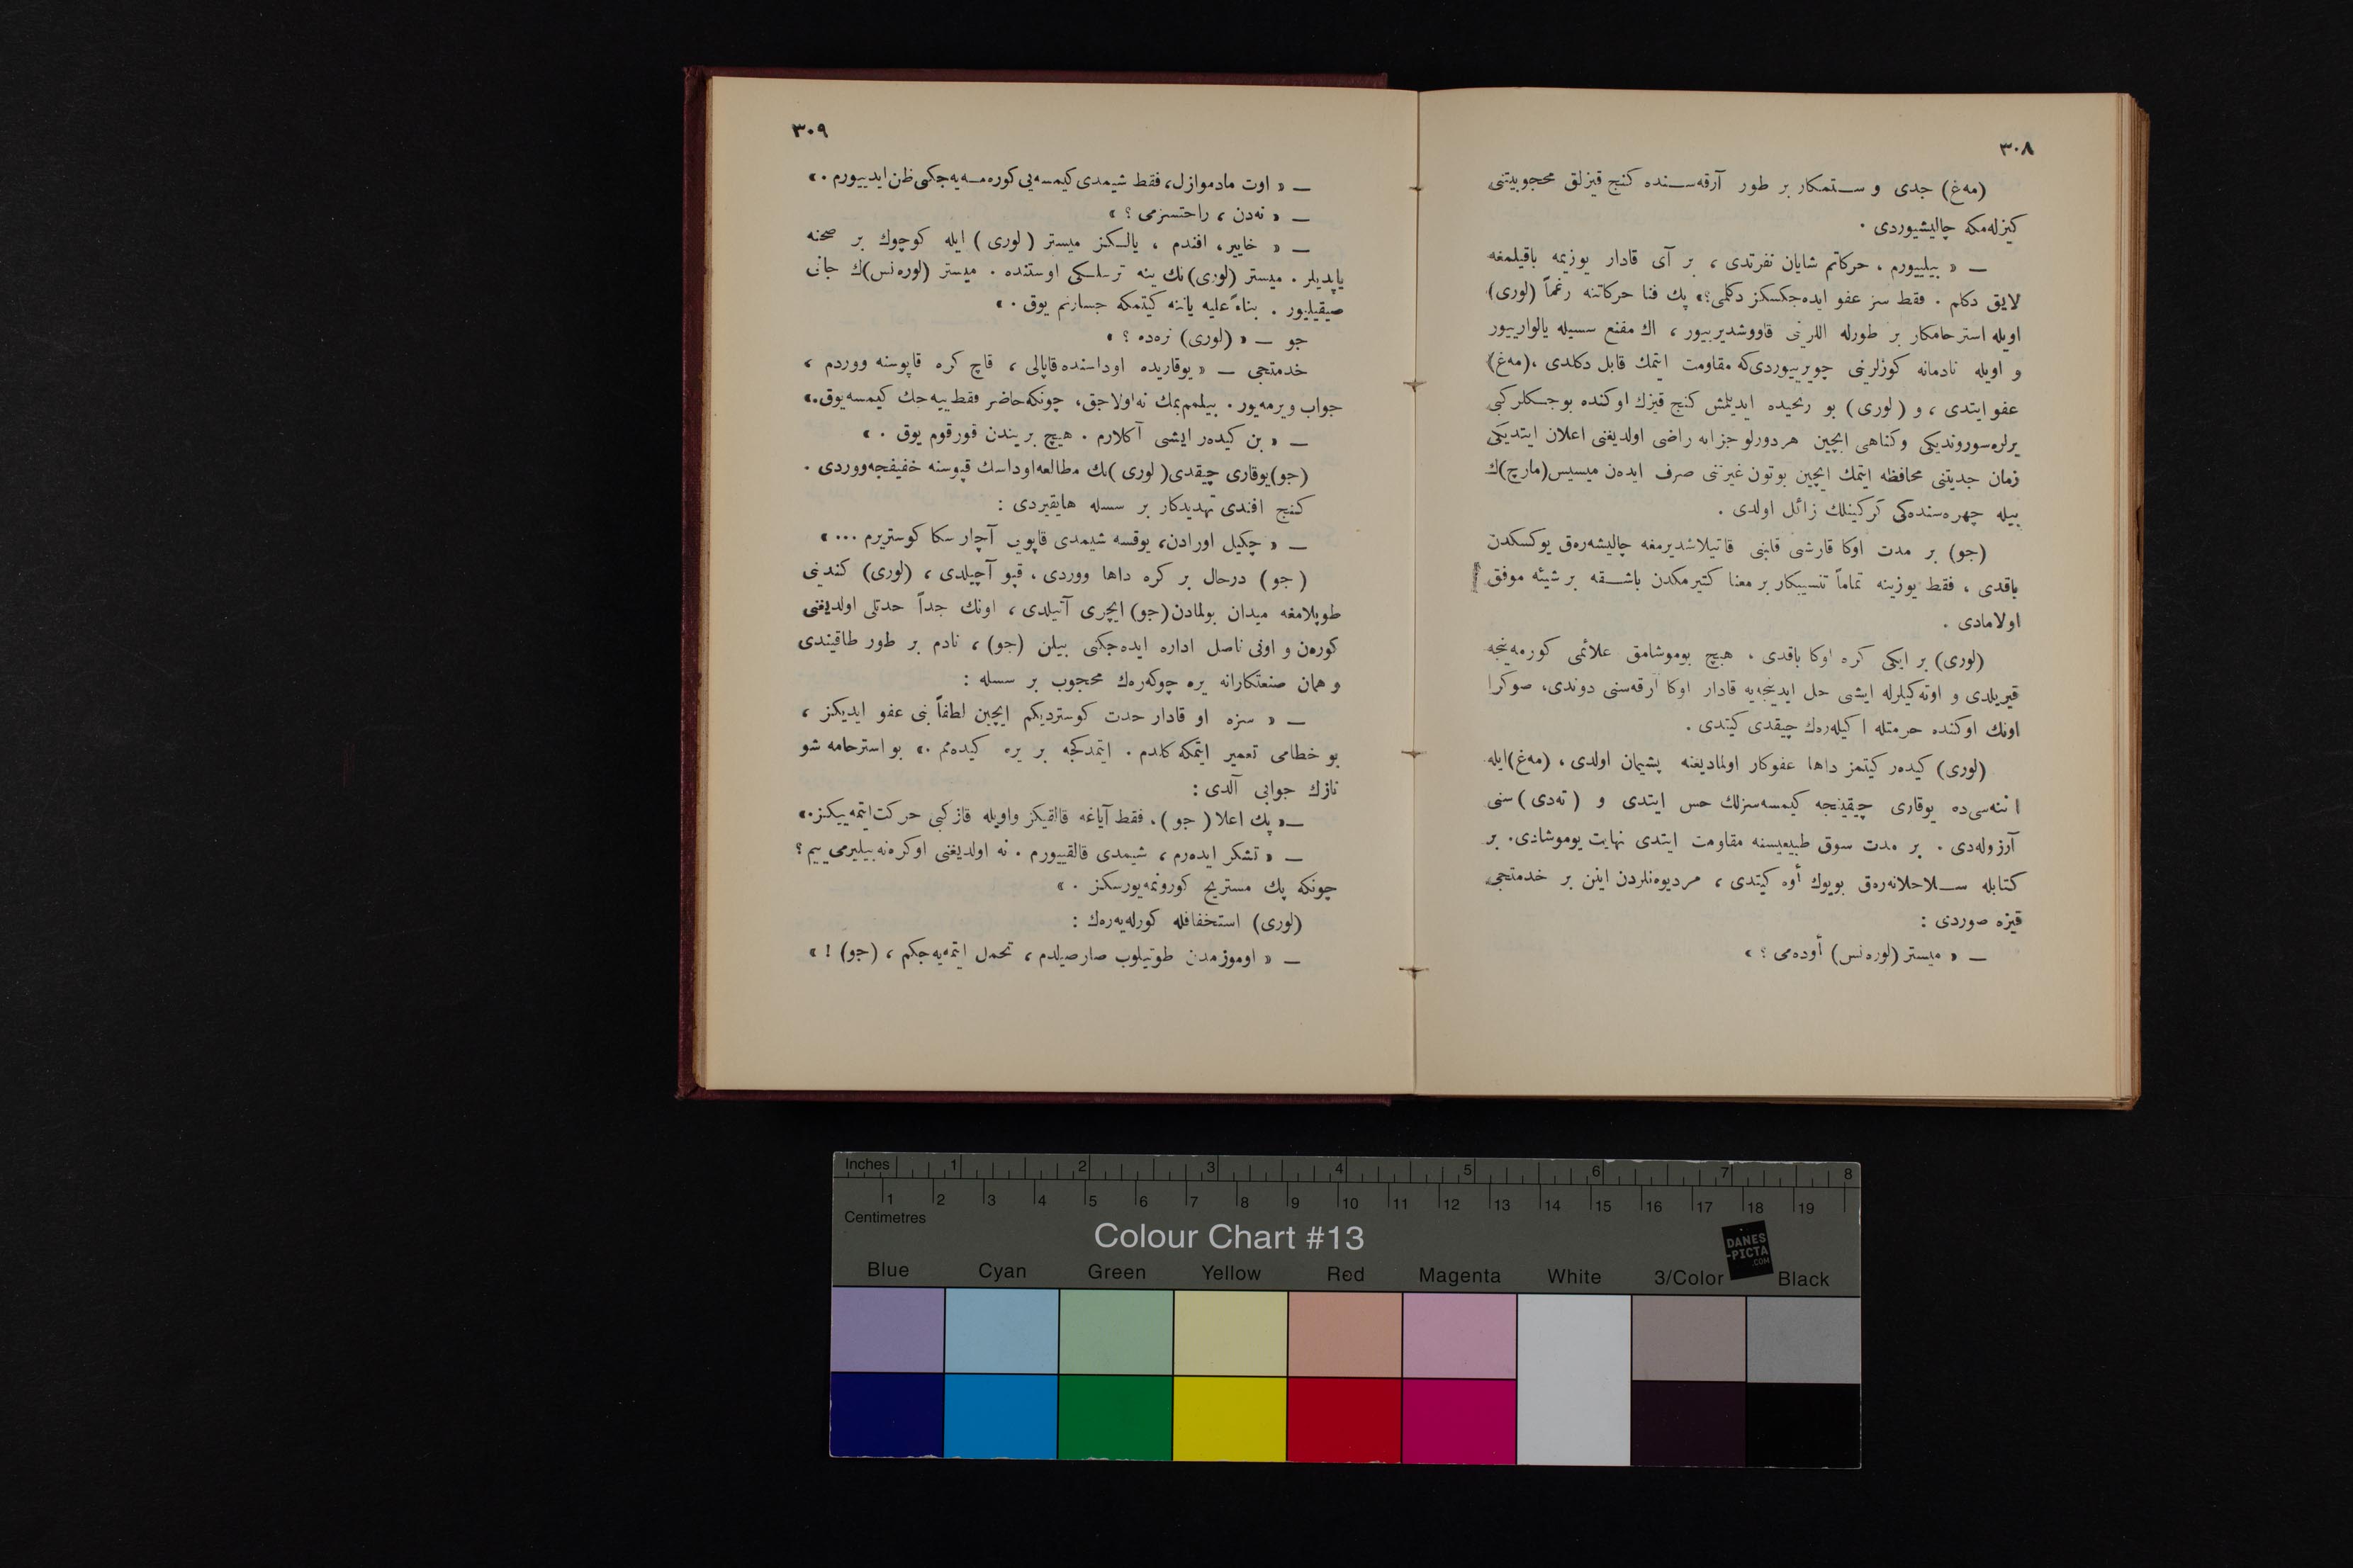 ٣٠٨
(مه‌غ) جدی و ستمکار بر طور آرقه‌سنده کنج قیزلق محجوبیتنی
کیزله‌مکه چالیشیوردی .
— « بیلییورم ، حرکاتم شایان نفرتدی ، بر آی قادار یوزیمه باقیلمغه
لایق دکلم . فقط سز عفو ایده‌جکسکز دکلمی؟» پك فنا حرکاتنه رغماً (لوری)
اویله استرحامکار بر طورله اللرینی قاووشدیریبور ، اك مقنع سسیله یالوارییور
و اویله نادمانه کوزلرینی چویرییوردی‌که مقاومت ایتمك قابل دکلدی ، (مه‌غ)
عفو ایتدی ، و (لوری) بو رنجیده ایدیلمش کنج قیزك اوکنده بوجکلر کبی
یرلره سوروندیکی وکناهی ایچین هر دورلو جزایه راضی اولدیغنی اعلان ایتدیکی
زمان جدیتنی محافظه ایتمك ایچین بوتون غیرتنی صرف ایده‌ن میسیس (مارچ)ك
بیله چهره‌سنده‌کی کرکینلك زائل اولدی .
(جو) بر مدت اوکا قارشی قلبنی قاتیلاشدیرمغه چالیشه‌رەق یوکسکدن
باقدی ، فقط یوزینه تماماً تنسیبکار بر معنا کتیرمکدن باشقه بر شیئه موفق
اولامادی .
(لوری) بر ایکی کره اوکا باقدی ، هیچ یوموشامق علائمی کورمه‌ینجه
قیریلدی و اوته‌کیلرله ایشی حل ایدینجه‌یه قادار اوکا آرقه‌سنی دوندی، صوکرا
اونك اوکنده حرمتله اکیله‌رەك چیقدی کیتدی .
(لوری) کیدەر کیتمز داها عفوکار اولمادیغنه پشیمان اولدی ، (مه‌غ) ایله
اننه‌سی ده یوقاری چیقینجه کیمسه‌سزلك حس ایتدی و (ته‌دی) سنی
آرزوله‌دی . بر مدت سوق طبیعیسنه مقاومت ایتدی نهایت یوموشادی. بر
کتابله سلاحلانه‌رەق بویوك أوه کیتدی ، مردیوه‌نلردن اینن بر خدمتجی
قیزه صوردی :
— « میستر (لوره‌نس) أوده‌می ؟ »
٣٠٩
— « اوت مادموازل، فقط شیمدی کیمسه‌یی کوره‌مه‌یه‌جکی ظن ایدییورم . »
— « نه‌دن ، راحتسزمی ؟ »
— « خایير، افندم ، یالکز میستر (لوری) ایله کوچوك بر صحنه
یاپدیلر . میستر (لوری) نك ینه ترسلکی اوستنده . میستر (لوره‌نس)ك جانی
صیقیلیور . بناءً علیه یاننه کیتمکه جسارتم یوق . »
جو — « (لوری) نره‌ده ؟ »
خدمتجی — « یوقاریده اوداسنده قاپالی ، قاچ کره قاپوسنه ووردم ،
جواب ویرمه‌یور . بیلمم یمك نه اولاجق، چونکه حاضر فقط ییه‌جك کیمسه یوق. »
— « بن کیدەر ایشی آکلارم . هیچ بریندن قورقوم یوق . »
(جو) یوقاری چیقدی (لوری) نك مطالعه اوداسنك قپوسنه خفیفجه ووردی .
کنج افندی تهدیدکار بر سسله هایقیردی :
— « چکیل اورادن، یوقسه شیمدی قاپویی آچار سکا کوستریرم ... »
(جو) درحال بر کره داها ووردی ، قپو آچیلدی ، (لوری) کندینی
طوپلامغه میدان بولمادن (جو) ایچری آتیلدی ، اونك جداً حدتلی اولدیغنی
کوره‌ن و اونی ناصل اداره ایده‌جکنی بیلن (جو) ، نادم بر طور طاقیندی
و همان صنعتکارانه یره چوکه‌رەك محجوب بر سسله :
— « سزه او قادار حدت کوستردیکم ایچین لطفاً بنی عفو ایدیکز ،
بو خطامی تعمیر ایتمکه کلدم . ایتمدکجه بر یره کیده‌مم . » بو استرحامه شو
نازك جوابی آلدی :
— « پك اعلا (جو) ، فقط آیاغه قالقیکز واویله قاز کبی حرکت ایتمه‌ییکز. »
— « تشکر ایده‌رم ، شیمدی قالقییورم . نه اولدیغنی اوکره‌نه‌بیلیرمی‌ییم ؟
چونکه پك مستریح کورونمه‌یورسکز . »
(لوری) استخفافله کورله‌یه‌رەك :
— « اوموزمدن طوتیلوب صارصیلدم ، تحمل ایتمه‌یه‌جکم ، (جو) ! »
Inches 1 2 3 4 5 6 7 8
1 2 3 4 5 6 7 8 9 10 11 12 13 14 15 16 17 18 19
Centimetres
Colour Chart #13
DANES
-PICTA
.COM
Blue Cyan Green Yellow Red Magenta White 3/Color Black